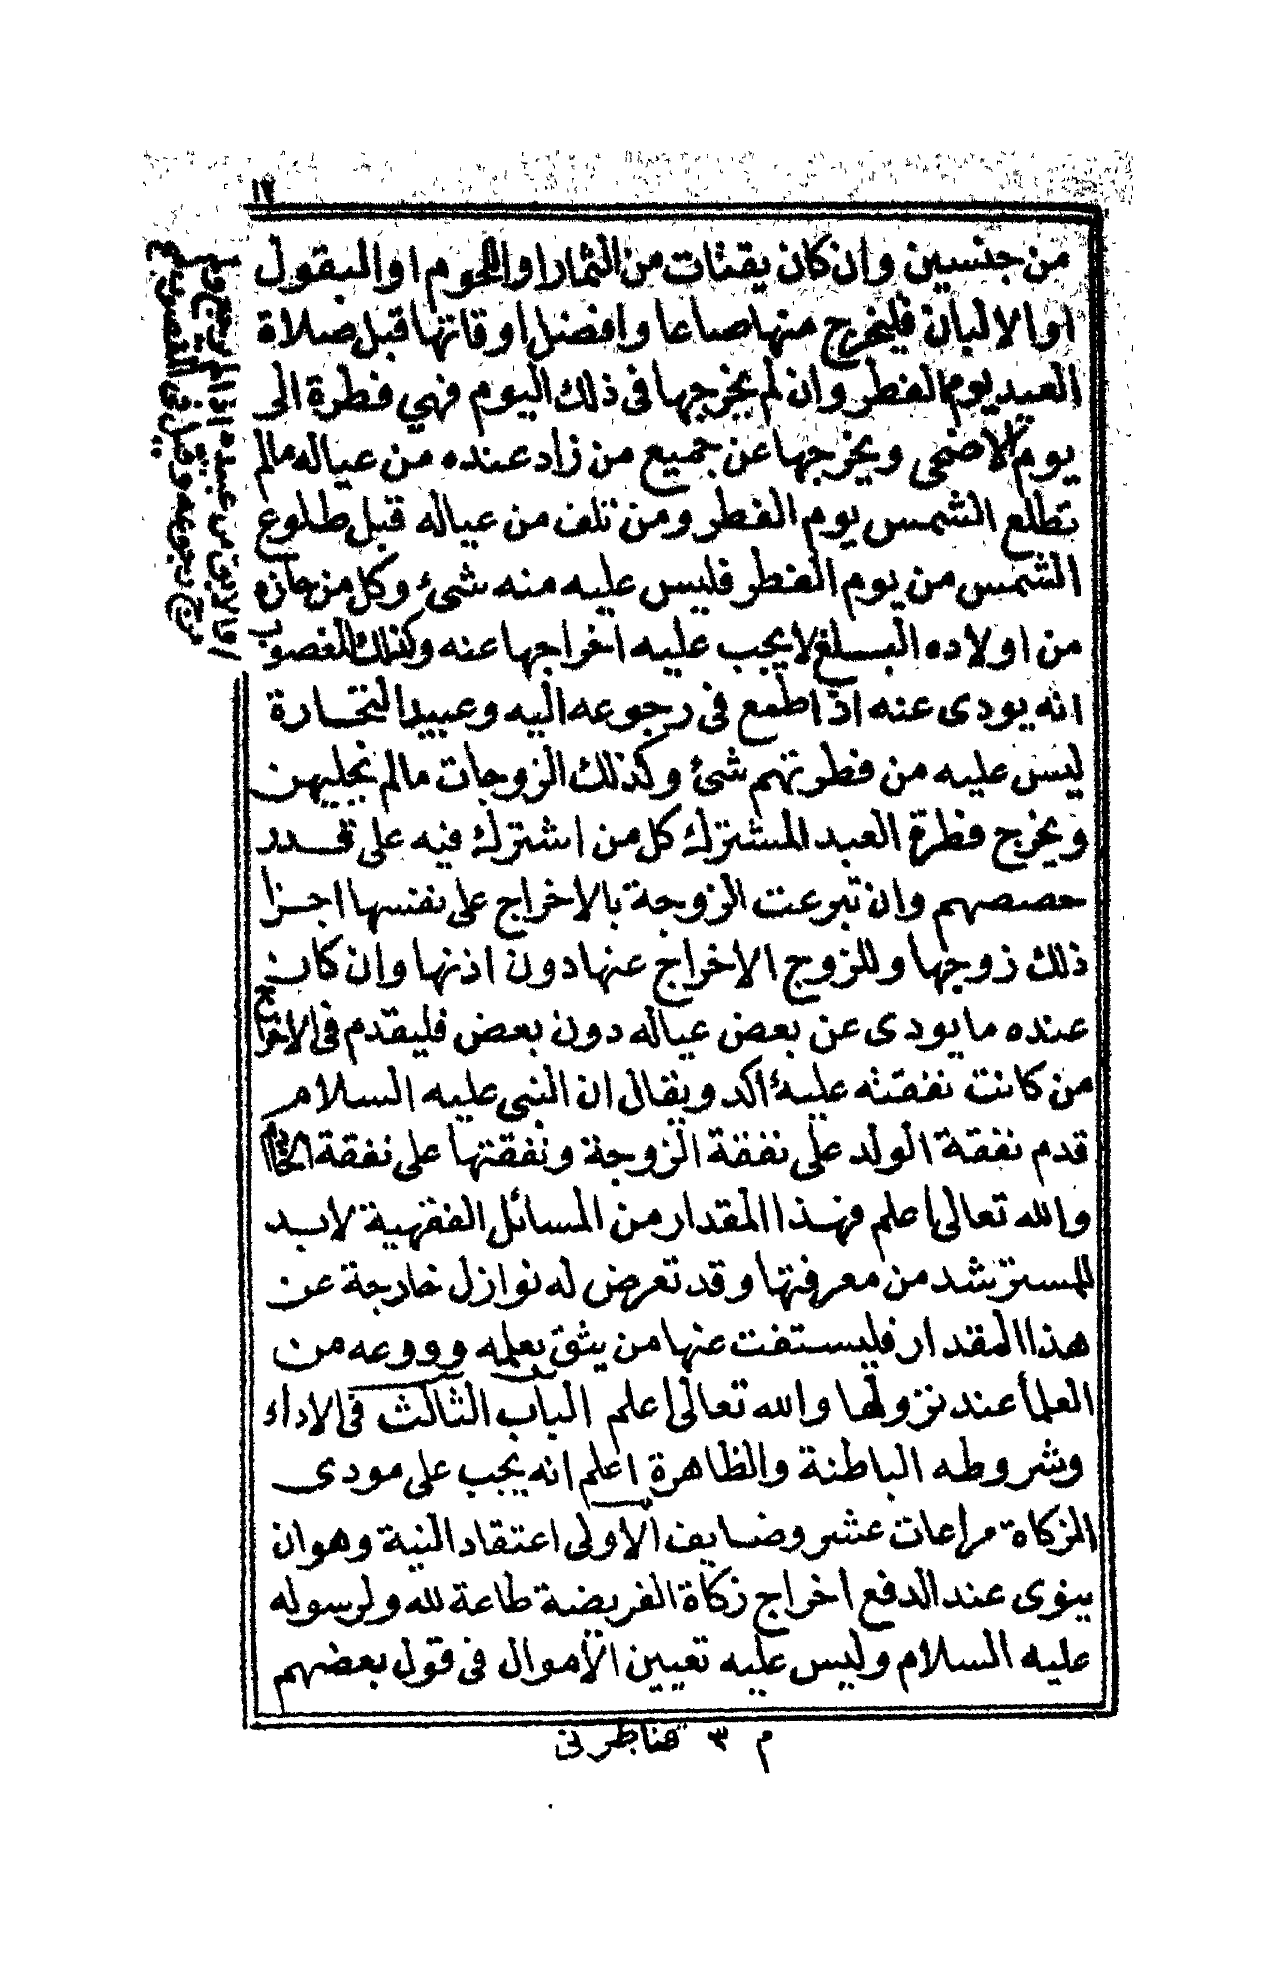 ١٢
من جنسين وان كان يقتات من الثمار او اللحوم او البقول
او الالبان فليخرج منها صاعا وافضل اوقاتها قبل صلاة
العيد يوم الفطر وان لم يخرجها فى ذلك اليوم فهي فطرة الى
يوم الاضحى ويخرجها عن جميع من زاد عنده من عياله مالم
تطلع الشمس يوم الفطر ومن تلف من عياله قبل طلوع
الشمس من يوم الفطر فليس عليه منه شئ وكل من حازه
من اولاده البلغ لا يجب عليه اخراجها عنه وكذلك المغصوب
انه يودى عنه اذا طمع فى رجوعه اليه وعبيد التجارة
ليس عليه من فطرتهم شئ وكذلك الزوجات مالم يجليهن
ويخرج فطرة العبد المشترك كل من اشترك فيه على قدر
حصصهم وان تبرعت الزوجة بالاخراج على نفسها اجزا
ذلك زوجها وللزوج الاخراج عنها دون اذنها وان كان
عنده ما يودى عن بعض عياله دون بعض فليقدم فى الاخراج
من كانت نفقته عليه أكد ويقال ان النبى عليه السلام
قدم نفقة الولد على نفقة الزوجة ونفقتها على نفقة الخادم
والله تعالى اعلم فهذا المقدار من المسائل الفقهية لابد
للمسترشد من معرفتها وقد تعرض له نوازل خارجة عن
هذا المقدار فليستفت عنها من يثق بعلمه وورعه من
العلمأ عند نزولها والله تعالى أعلم الباب الثالث فى الاداء
وشروطه الباطنة والظاهرة اعلم انه يجب على مودى
الزكاة مراعات عشر وضايف الاولى اعتقاد النية وهوان
ينوى عند الدفع اخراج زكاة الفريضة طاعة لله ولرسوله
عليه السلام وليس عليه تعيين الأموال فى قول بعضهم
م ٣ قناطر نى